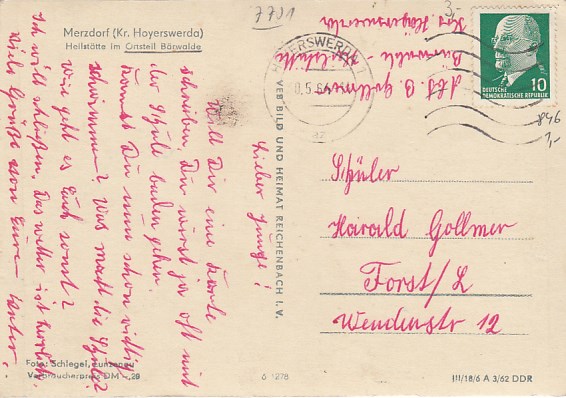 Merzdorf (Kr. Hoyerswerda)
Heilstätte im Ortsteil Bärwalde
7701
3,-
HOYERSWERDA 1
8.5.64
az
Abs. G. Gollmer
Bärwalde -
Kr. Hoyerswerda
10
DEUTSCHE
DEMOKRATISCHE REPUBLIK
846
1,-
Lieber Junge!
Will Dir eine Karte
schreiben, Du wirst ja oft mit
der Schule baden gehen.
Kannst Du nun schon richtig
schwimmen? Was macht die Schule?
Wie geht es Euch sonst?
Ich will schließen, das Wetter ist herrlich
Viele Grüße von Eurer
VEB BILD UND HEIMAT REICHENBACH I. V.
Schüler
Harald Gollmer
Forst/L
Wendenstr 12
Foto: Schlegel, Lunzenau
Verbraucherpreis DM -,20
G 1278
III/18/6 A 3/62 DDR